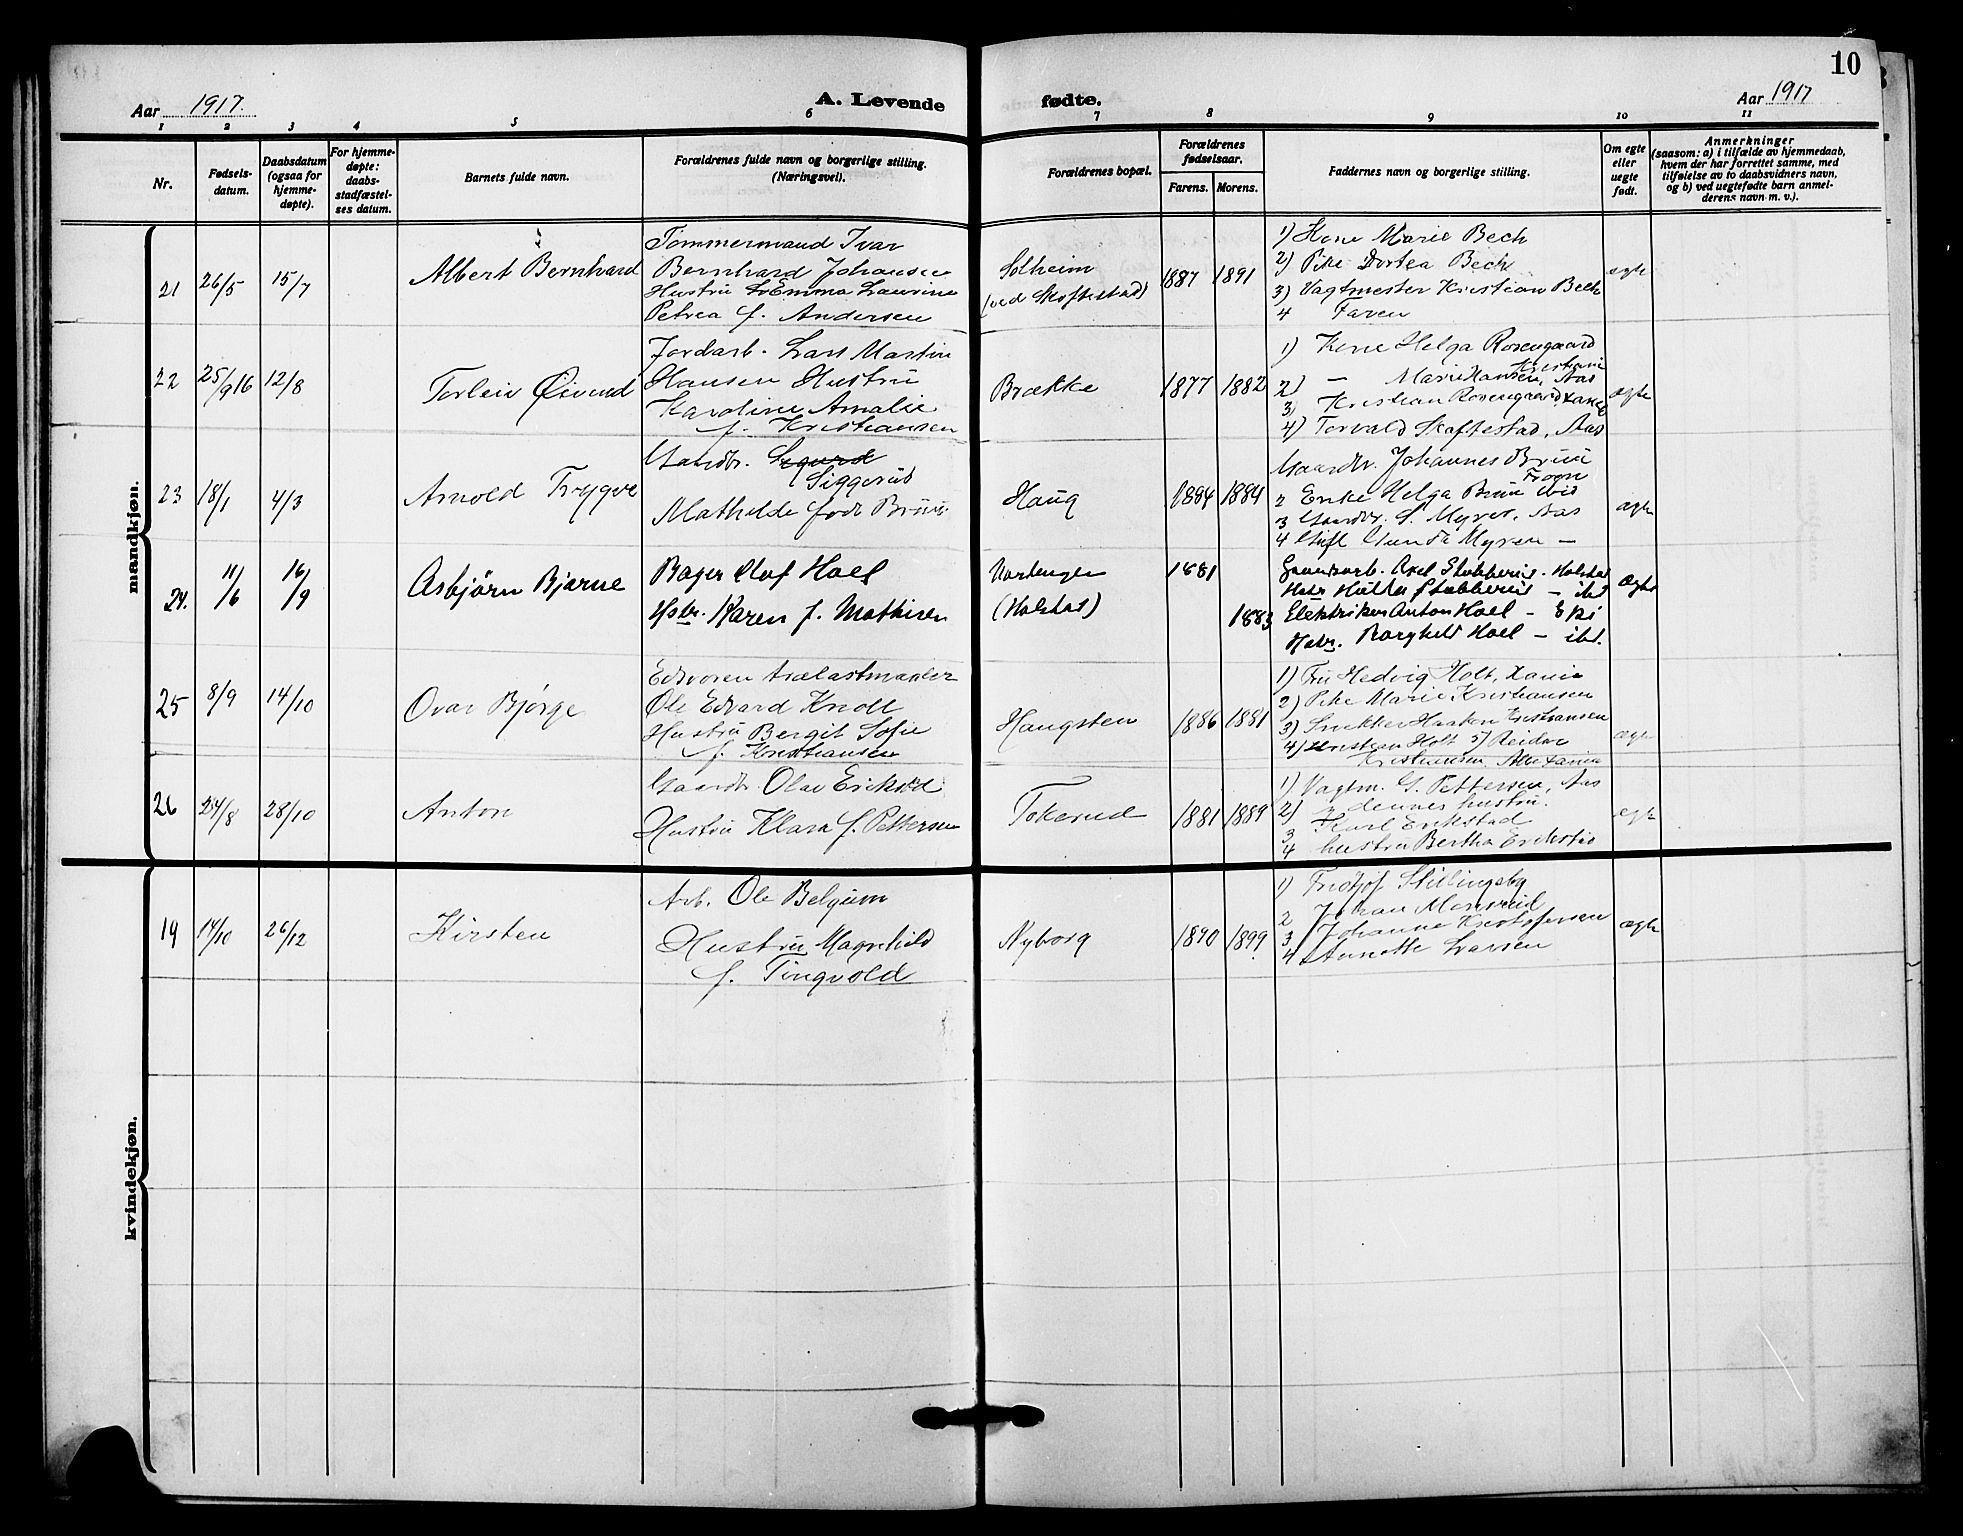 10
Aar 1917.
A. Levende fødte.
Aar 1917
1 2 3 4 5 6 7 8 9 10 11
Nr.
Fødsels-
datum.
Daabsdatum
(ogsaa for
hjemme-
døpte).
For hjemme-
døpte:
daabs-
stadfæstel-
ses datum.
Barnets fulde navn.
Forældrenes fulde navn og borgerlige stilling.
(Næringsvei).
Forældrenes bopæl.
Forældrenes
fødselsaar.
Farens. Morens.
Faddernes navn og borgerlige stilling.
Om egte
eller
uegte
født.
Anmerkninger
(saasom: a) i tilfælde av hjemmedaab,
hvem der har forrettet samme, med
tilføielse av to daabsvidners navn,
og b) ved uegtefødte barn anmel-
derens navn m. v.).
mandkjøn.
21 26/5 15/7 Albert Bernhard
Tømmermand Ivar
Bernhard Johansen
Hustru Emma Laurine
Petrea f. Andersen
Solheim
(ved Skoftestad)
1887 1891
1) Kone Marie Bech
2) Pike Dortea Bech
3) Vagtmester Kristian Bech
4 Faren
egte
22 25/9 16 12/8 Torleiv Øivind
Jordarb. Lars Martin
Hansen Hustru
Karoline Amalie
f. Kristiansen
Brække
1877 1882
1) Kone Helga Rosengaard
Kristiania
2) — Marie Hansen, Aas
3) Kristian Rosengaard
4) Torvald Skoftestad, Aas
ægte
23 18/1 4/3 Arnold Trygve
Gaardbr. Sigurd
Siggerud
Mathilde født Bruu
Haug
1884 1884
Gaardbr. Johannes Bruu
Frogn
2 Enke Helga Bruu ibid
3 Gaardbr. S. Myrer, Aas
4 Gift Gunda Myren —
ægte
24. 11/6 16/9 Asbjörn Bjarne
Bager Olaf Hoel
Hstr. Karen f. Mathisen
(Holstad)
1881
1883
Axel Stubberud. Holstad
Hstr Hulda Stubberud — ibd
Elektriker Anton Hoel — Ski
Hstr. Borghild Hoel — ibd.
Ægte
25 8/9 14/10 Ovar Bjørge
Edsvoren trælastmaaler
Ole Edvard Knoll
Hustru Bergit Sofie
f. Kristiansen
Haugsten
1886 1881
1) Fru Hedvig Holt, Xania
2) Pike Marie Kristiansen
3) Snekker Haakon Kristiansen
4) Kristian Holt 5) Reidar
Kristiansen, Alle Xania
ægte
26 24/8 28/10 Anton
Gaardbr. Olav Erikstad
Hustru Klara f. Pettersen
Tokerud
1881 1889
1) Vagtm. G. Pettersen, Aas
2) dennes hustru.
3 Karl Erikstad
4 hustru Bertha Erikstad
egte
kvindekjøn.
19 14/10 26/12 Kirsten
Arb. Ole Belgum
Hustru Magnhild
f. Tingvold
Nyborg
1890 1899
1) Fridtjof Stillingsby
2 Johan Monsrud
3 Johanne Kristofersen
4 Annette Larsen
ægte